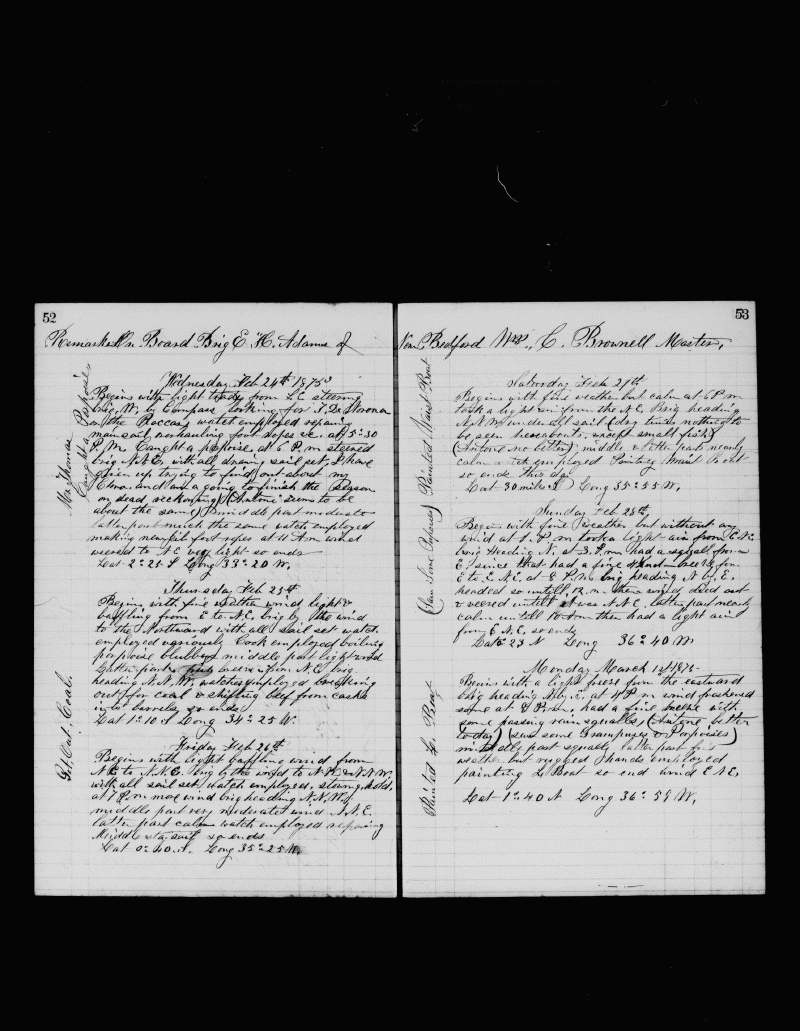 52
Remarks On Board Brig E. H. Adams of
Wednesday Feb 24th 1875
Begins with light from S.E. steering
brig W. by Compass looking for
on the Roccas watch employed repairing
mainsail foot ropes &c. at 5-30
P.M. Caught a porpoise, at 6 P.M steered
brig N.N.E. with all drawing sail set, I have
given up trying to find out about my
and am a going to finish the Season
on dead reckoning) (Antone seems to be
about the same) middle part moderate
latter part much the same watch employed
making new foot ropes at 11 A.m wind
veered to N.E very light so ends
Lat 2°25 S Long 33°20 W.
Mr Thomas
Caught Porpoise
Thursday Feb 25th
Begins with fine weather wind light &
baffling from E to N.E. brig by the wind
to the Northward with all sail set watch
employed variously Cook employed boiling
porpoise blubber middle part light wind
latter part fine breeze from N.E. brig
heading N.N.W. watches employed breaking
out for coal & shifting beef from casks
into barrels so ends
Lat 1°10 S Long 34°25 W.
Got Out Coal.
Friday Feb 26th
Begins with light baffling wind from
N.E to N.N.E. brig by the wind to N.W & N.N.W.
with all sail set watch employed, stowing hold.
at 7 P.m more wind brig heading N.N.W.
middle part very moderate wind N.N.E.
latter part calm watch employed repairing
Middle staysail so ends
Lat 0°40 S. Long 35°25 W.
53
New Bedford Mass., C. Brownell Master,
Saturday Feb 27th
Begins with fine weather but calm at 6 P m
took a light air from the N.E, Brig heading
N.N.W. under all sail (dry times nothing to
be seen hereabouts, except small fish)
(Antone no better) middle & latter part nearly
calm watch employed Painting Waist Boat
so ends this day
Lat 30 miles S Long 35°55 W.
Painted Waist Boat
Sunday Feb 28th
Begins with fine weather but without any
wind at 1. P.m took a light air from E.N.E.
brig Heading N. at 3. P.m. had a squall from
E, since that had a fine breeze from
E to E.N.E. at 8 P.m. brig heading N by E.
headed so untill 12 m. then wind died out
& veered untill it was N.N.E, latter part nearly
calm untill 10 Am then had a light air
from E.N.E. so ends
Lat 23 N Long 36°40 W
(Saw Some Porpoises)
Monday March 1st 1875
Begins with a light breeze from the eastward
brig heading N by E. at 4 P m wind freshened
some at 8 P.m. had a fine breeze with
some passing rain squalls, (Antone better
to day) (saw some Grampuses & Porpoises)
middle part squally latter part fine
weather but rugged hands employed
painting L. Boat so end wind E.N.E.
Lat 1°40 N Long 36°59 W.
Painted L. Boat